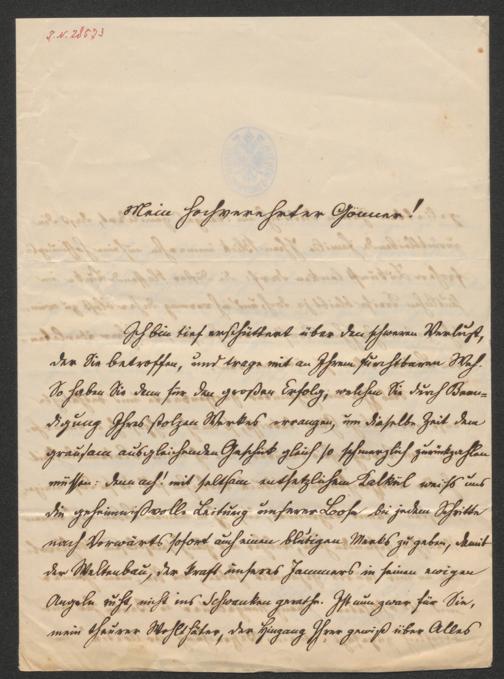 I.N. 28573
Mein hochverehrter Gönner!
Ich bin tief erschüttert über den schweren Verlust,
der Sie betroffen, und trage mit an Ihrem furchtbaren Weh.
So haben Sie denn für den großen Erfolg, welchen Sie durch Been-
digung Ihres stolzen Werkes errangen, um dieselbe Zeit dem
grausam ausgleichenden Geschick gleich so schmerzlich zurückzahlen
müssen: denn ach! mit seltsam entsetzlichem Kalkül weiss uns
die geheimnißvolle Leitung unserer Loose bei jedem Schritte
nach Vorwärts sofort auch einen blutigen Merks zu geben, damit
der Weltenbau, der kraft unseres Jammers in seinen ewigen
Angeln ruht, nicht ins Schwanken gerathe. Ist nun zwar für Sie,
mein theurer Wohlthäter, der Hingang Ihrer gewiß über Alles